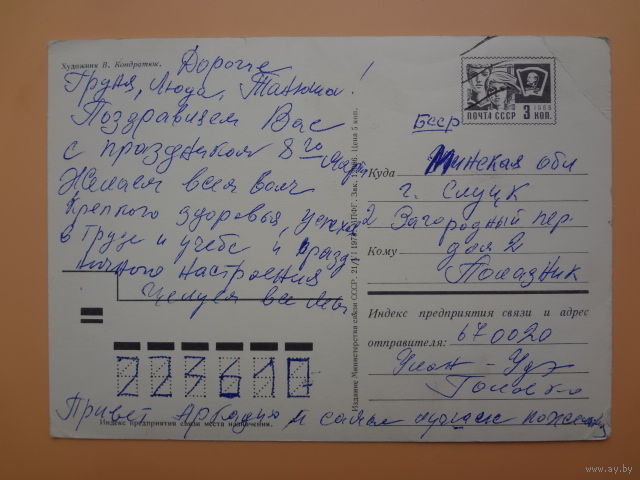 Художник В. Кондратюк.
Дорогие
Груня, Люда, Танюша!
Поздравляем Вас
с праздником 8го марта
Желаем всем вам
крепкого здоровья, успеха
в труде и учебе и празд
ничного настроения
Целуем все мы
Привет Аркадию и самые лучшие пожелания
Индекс предприятия связи места назначения.
223610
Издание Министерства связи СССР.
Цена 5 коп.
1966
ПОЧТА СССР 3 КОП.
БССР
Куда Минская обл
г. Слуцк
2 Загородный пер
Кому дом 2
Помазник
Индекс предприятия связи и адрес
отправителя: 670020
Улан-Удэ
www.ay.by